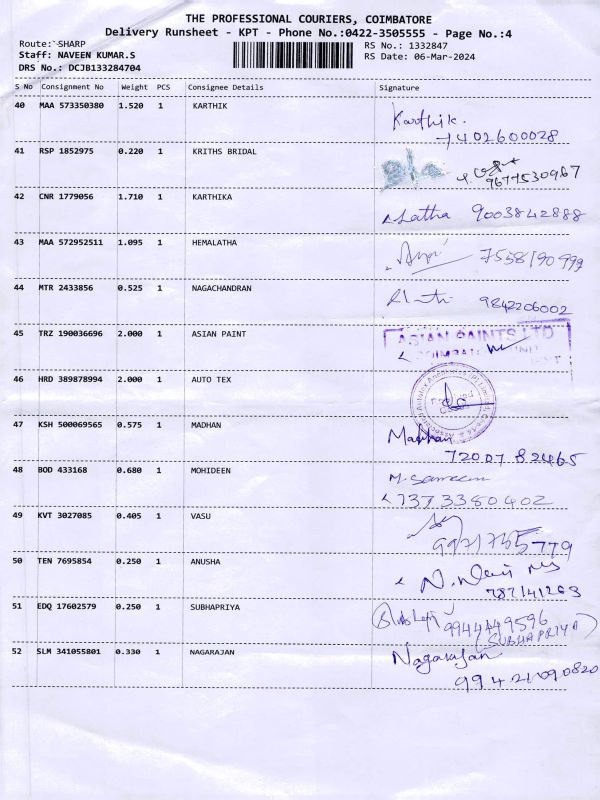 THE PROFESSIONAL COURIERS, COIMBATORE
Delivery Runsheet - KPT - Phone No.:0422-3505555 - Page No.:4
Route:`SHARP
RS No.: 1332847
Staff: NAVEEN KUMAR.S
RS Date: 06-Mar-2024
DRS No.: DCJB133284704
S No Consignment No Weight PCS Consignee Details Signature
40 MAA 573350380 1.520 1 KARTHIK Karthik.
7402600028
41 RSP 1852975 0.220 1 KRITHS BRIDAL
9677530967
42 CNR 1779056 1.710 1 KARTHIKA Latha 9003842888
43 MAA 572952511 1.095 1 HEMALATHA 7558190999
44 MTR 2433856 0.525 1 NAGACHANDRAN 9842206002
45 TRZ 190036696 2.000 1 ASIAN PAINT ASIAN PAINTS LTD
46 HRD 389878994 2.000 1 AUTO TEX
47 KSH 500069565 0.575 1 MADHAN Madhan
72007 82465
48 BOD 433168 0.680 1 MOHIDEEN
7373380402
49 KVT 3027085 0.405 1 VASU
50 TEN 7695854 0.250 1 ANUSHA
787141263
51 EDQ 17602579 0.250 1 SUBHAPRIYA 9944449596
(SUBHAPRIYA)
52 SLM 341055801 0.330 1 NAGARAJAN Nagarajan